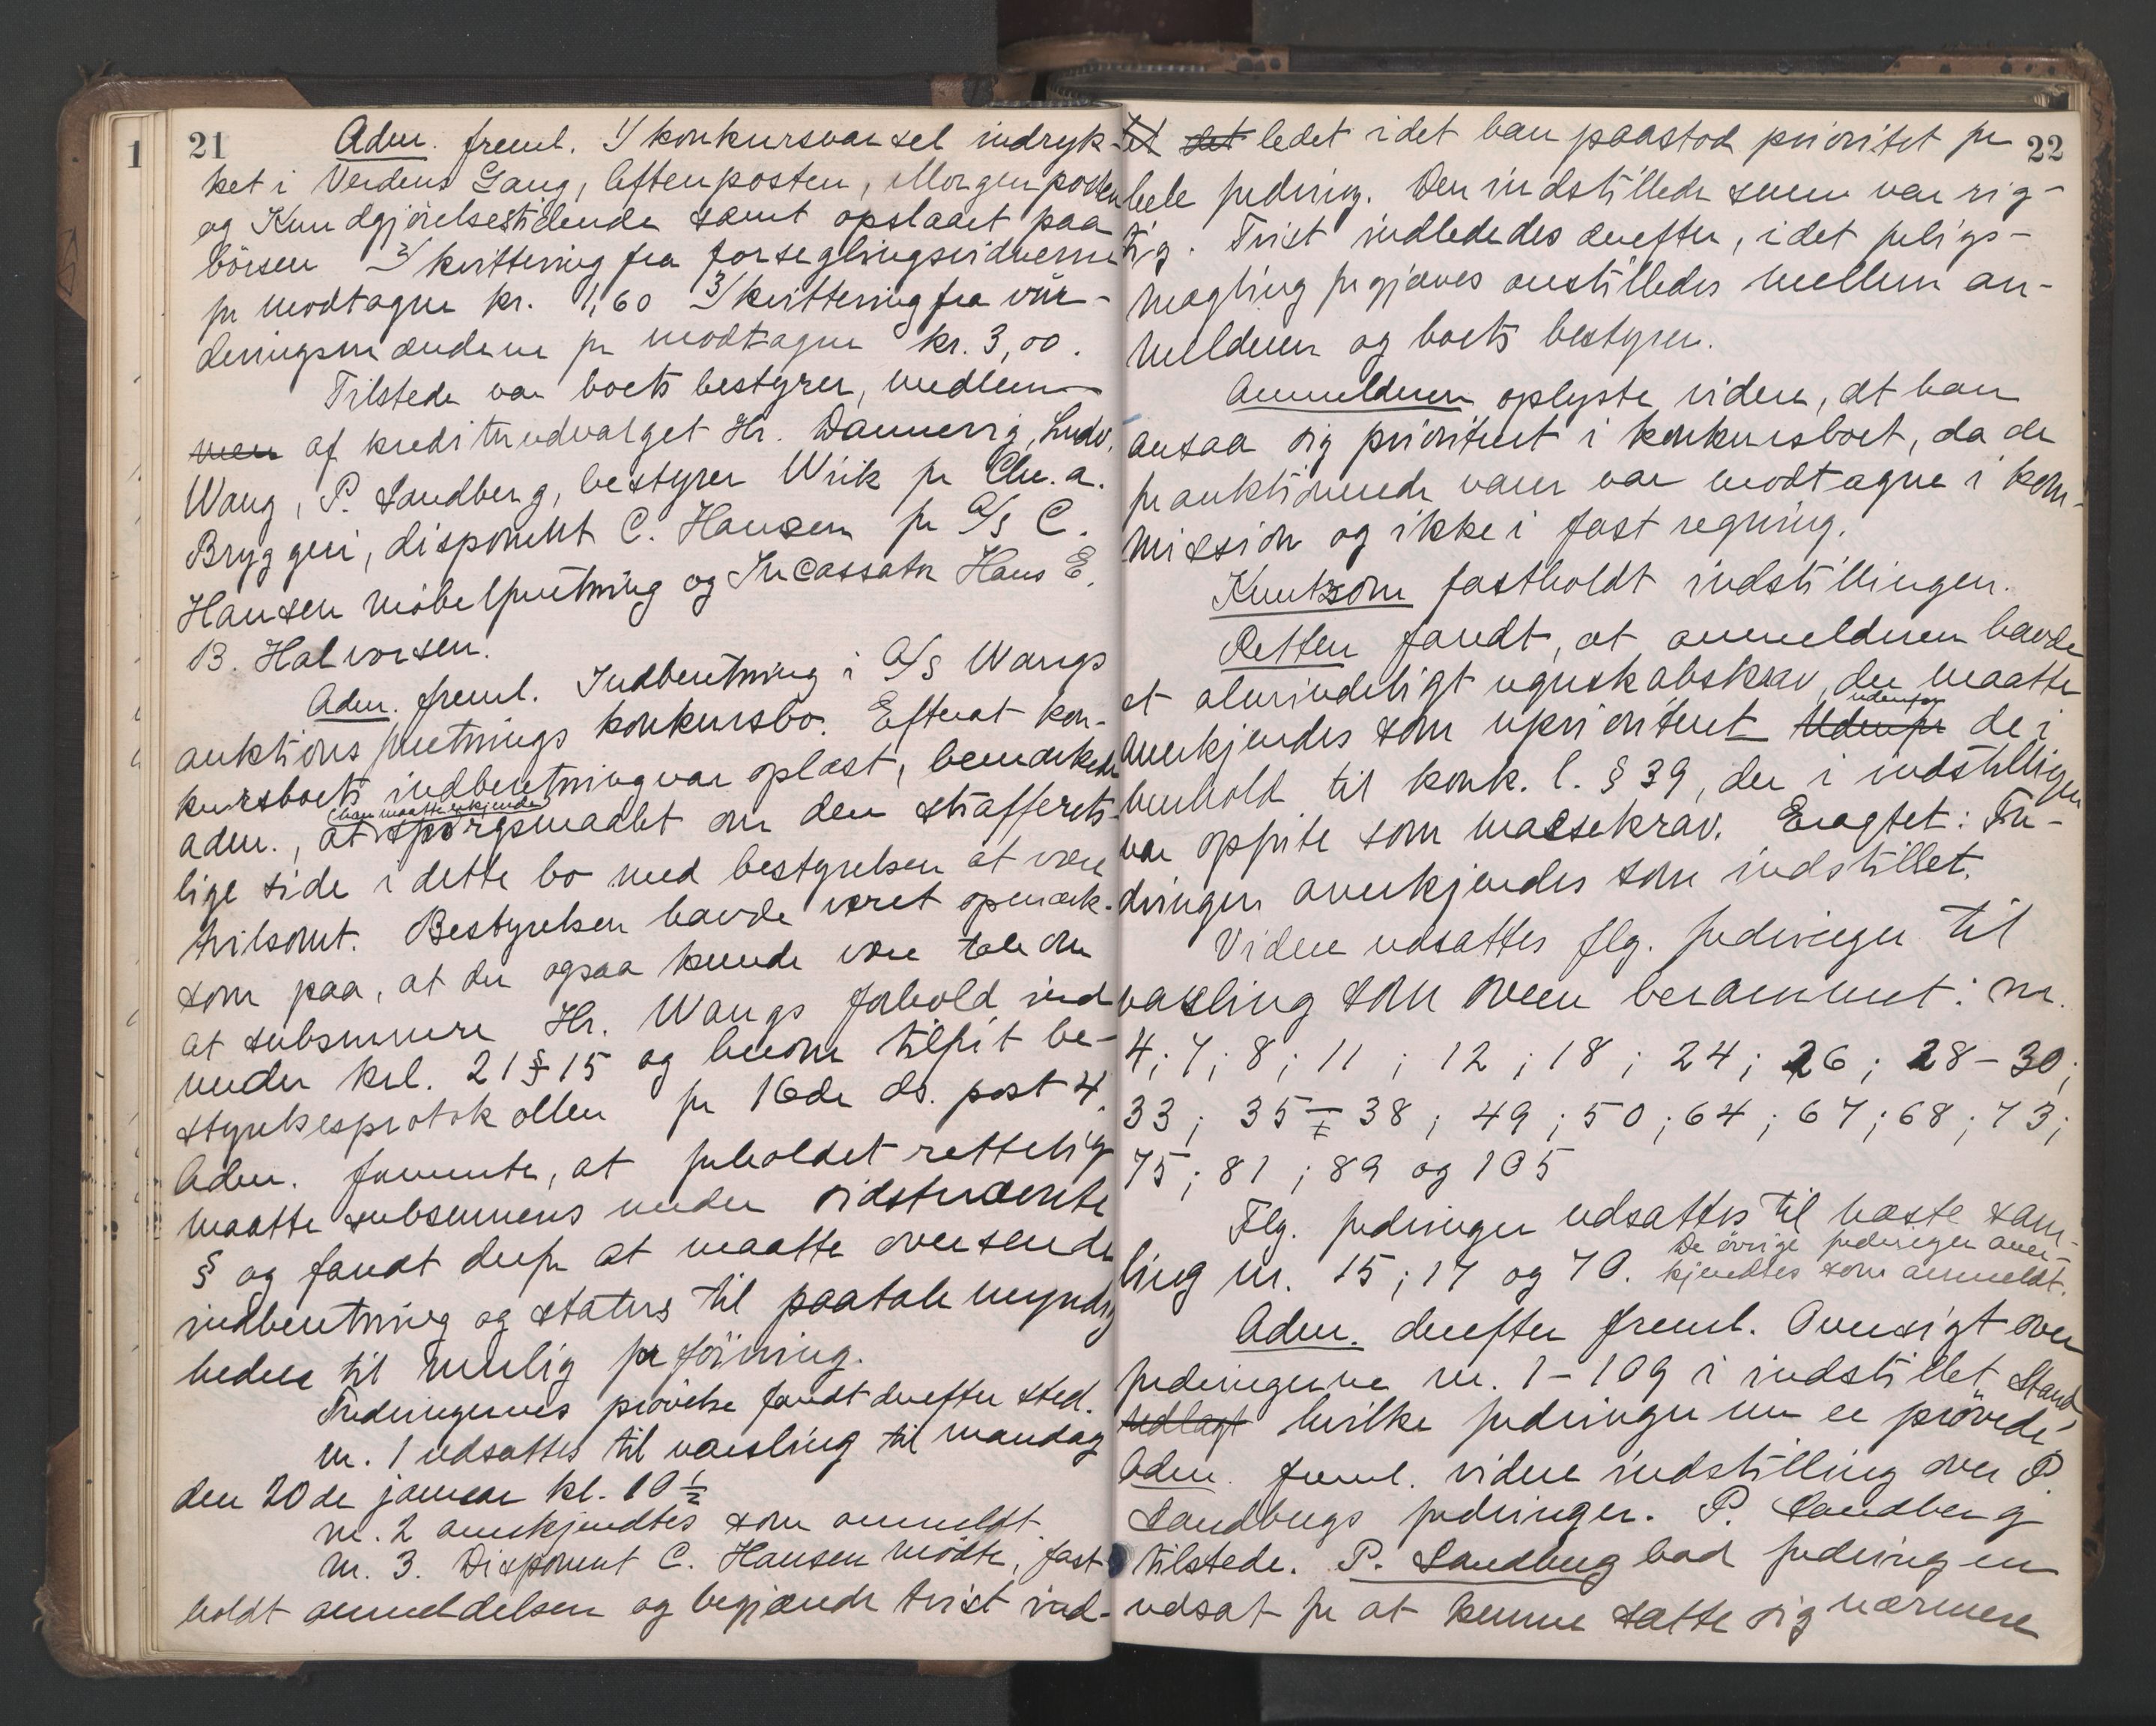 1
21
Adm. freml. 1/ konkursvarsel indryk-
ket i Verdens Gang, Aftenposten, Morgenposten
og Kundgjörelsestidende samt opslaaet paa
börsen 2/ kvittering fra forseglingsvidnerne
for modtagne kr. 1,60 3/ kvittering fra vur-
deringsmændene for modtagne kr. 3,00.
Tilstede var boets bestyrer, medlem-
men af kreditorudvalget Hr. Dannevig, Ludv.
Wang, P. Sandberg, bestyrer Wiik for Chr.a.
Bryggeri, disponent C. Hansen for A/S C.
Hansen Möbelforretning og Incassator Hans E.
B. Halvorsen.
Adm. freml. Indberetning i A/S Wangs
auktionsforretnings konkursbo. Efterat kon-
kursboets indberetning var oplæst, bemærkede
(han maatte erkjende)
adm., at spörgsmaalet om den strafferets-
lige side i dette bo med bestyrelsen at være
tvilsomt. Bestyrelsen havde været opmærk-
som paa, at der ogsaa kunde være tale om
at subsumere Hr. Wangs forhold ind
under krl. 21 § 15 og herom tilfört be-
styrelsesprotokollen for 16de ds. post 4.
Adm. formente, at forholdet rettelig
maatte subsumeres under sidstnævnte
§ og fandt derfor at maatte oversende
indberetning og status til paatalemyndig
heden til mulig forföining.
Fordringernes prövelse fandt derefter sted.
nr. 1 udsattes til varsling til mandag
den 20de januar kl. 10 1/2
nr. 2 anerkjendtes som anmeldt.
nr. 3. Disponent C. Hansen mödte, fast-
holdt anmeldelsen og begjærede tvist ind-
22
tet det ledet idet han paastod prioritet for
hele fordring. Den indstillede sum var rig-
tig. Tvist indlededes derefter, idet forligs-
mægling forgjæves anstilledes mellem an-
melderen og boets bestyrer.
Anmelderen oplyste videre, at han
ansaa sig prioritert i konkursboet, da de
forauktionerede varer var modtagne i kom-
mission og ikke i fast regning.
Knutzon fastholdt indstillingen.
Retten fandt, at anmelderen havde
et almindeligt regnskabskrav, der maatte
udenfor
anerkjendes som uprioritert udenfor de i
henhold til konk. l. § 39, der i indstillingen
var opförte som massekrav. Eragtet: For-
dringen anerkjendes som indstillet.
Videre udsattes flg. fordringer til
varsling som oven berammet: nr.
4; 7; 8; 11; 12; 18; 24; 26; 28-30;
33; 35-38; 49; 50; 64; 67; 68; 73;
75; 81; 89 og 105
Flg. fordringer udsattes til næste sam-
De övrige fordringer aner-
ling nr. 15; 17 og 70. kjendtes som anmeldt.
Adm. derefter freml. Oversigt over
fordringerne nr. 1-109 i indstillet Stand,
vedlagt hvilke fordringer nu er prövede
Adm. freml. videre indstilling over P.
Sandbergs fordringer. P. Sandberg
tilstede. P. Sandberg bad fordringen
udsat for at kunne sætte sig nærmere